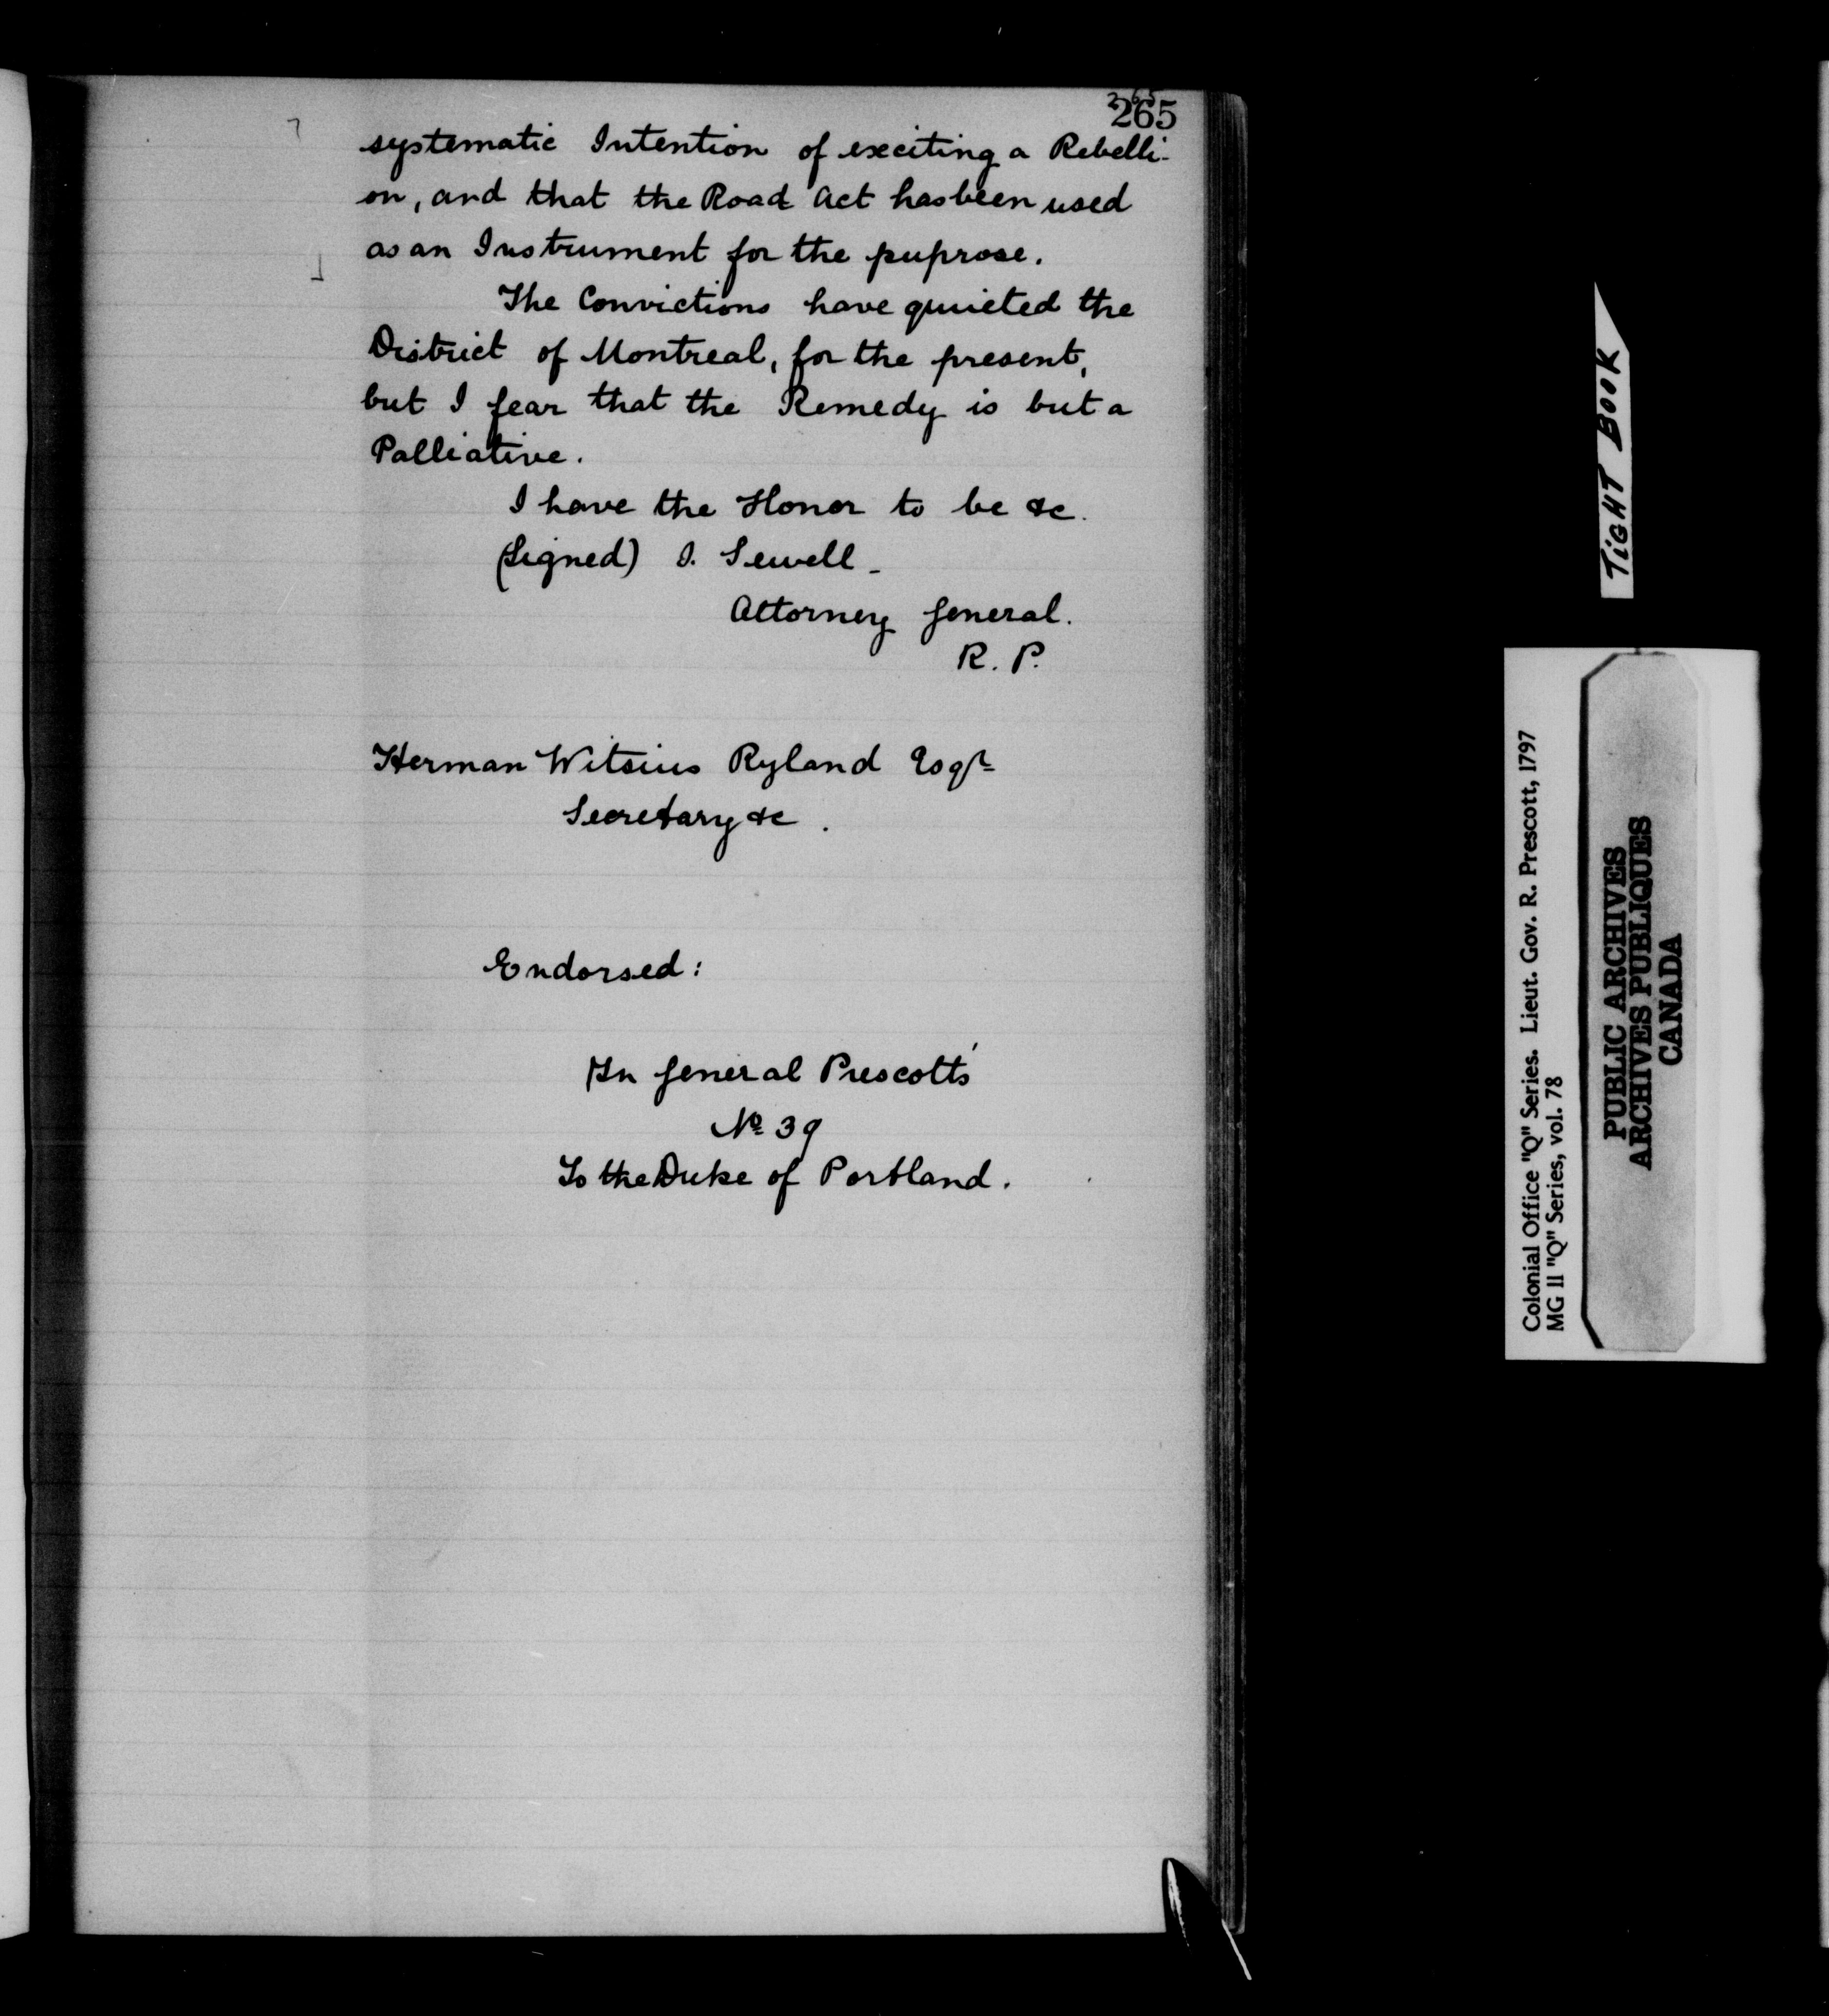 265
265
systematic Intention of exciting a Rebelli-
on, and that the Road Act has been used
as an Instrument for the puprose.
The Convictions have quieted the
District of Montreal, for the present,
but I fear that the Remedy is but a
Palliative.
I have the Honor to be &c.
(Signed) I. Sewell -
Attorney General.
R. P.
Herman Witsius Ryland Esqr
Secretary &c.
Endorsed:
In General Prescott's
No 39
To the Duke of Portland.
TIGHT BOOK
Colonial Office "Q" Series. Lieut. Gov. R. Prescott, 1797
MG 11 "Q" Series, vol. 78
PUBLIC ARCHIVES
ARCHIVES PUBLIQUES
CANADA